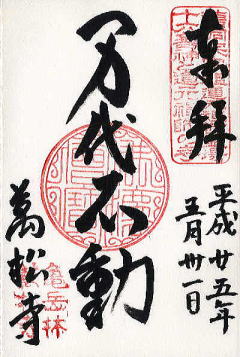 奉拝
平成廿五年
五月卅一日
万代不動
萬松寺
亀岳林